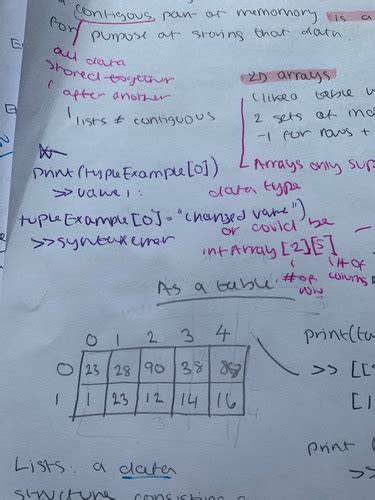 a contiguous part of memomory is a
for purpose of storing that data.
all data
stored together
1 after another
lists ≠ contiguous
2D arrays
(like a table
2 sets of
-1 for rows +
Arrays only
data type
print(tupleExample[0])
>> value 1
tupleExample[0] = "changed value")
>> syntax error
or could be
intArray [2][5]
# of row
# of columns
As a table:
0 1 2 3 4
0 23 28 90 38
1 1 23 12 14 16
>> [[
[1
print
Lists: a data
structure consisting